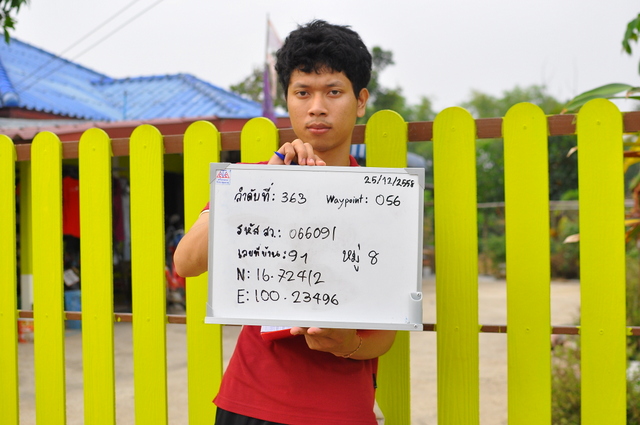 25/12/2558
ลำดับที่: 363 Waypoint: 056
รหัส สว.: 066091
เลขที่บ้าน: 91 หมู่ 8
N: 16.72412
E: 100.23496